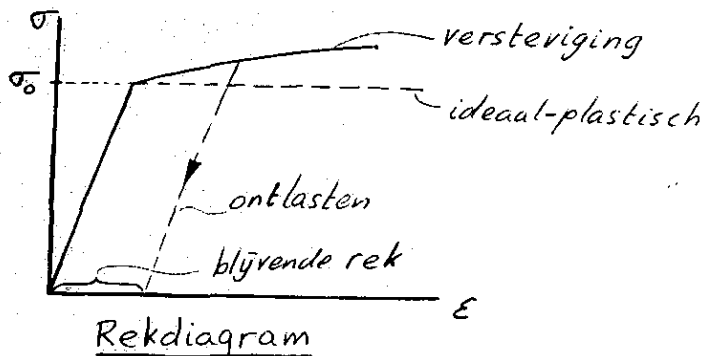 σ
versteviging
σ₀
ideaal-plastisch
ontlasten
blijvende rek
ε
Rekdiagram